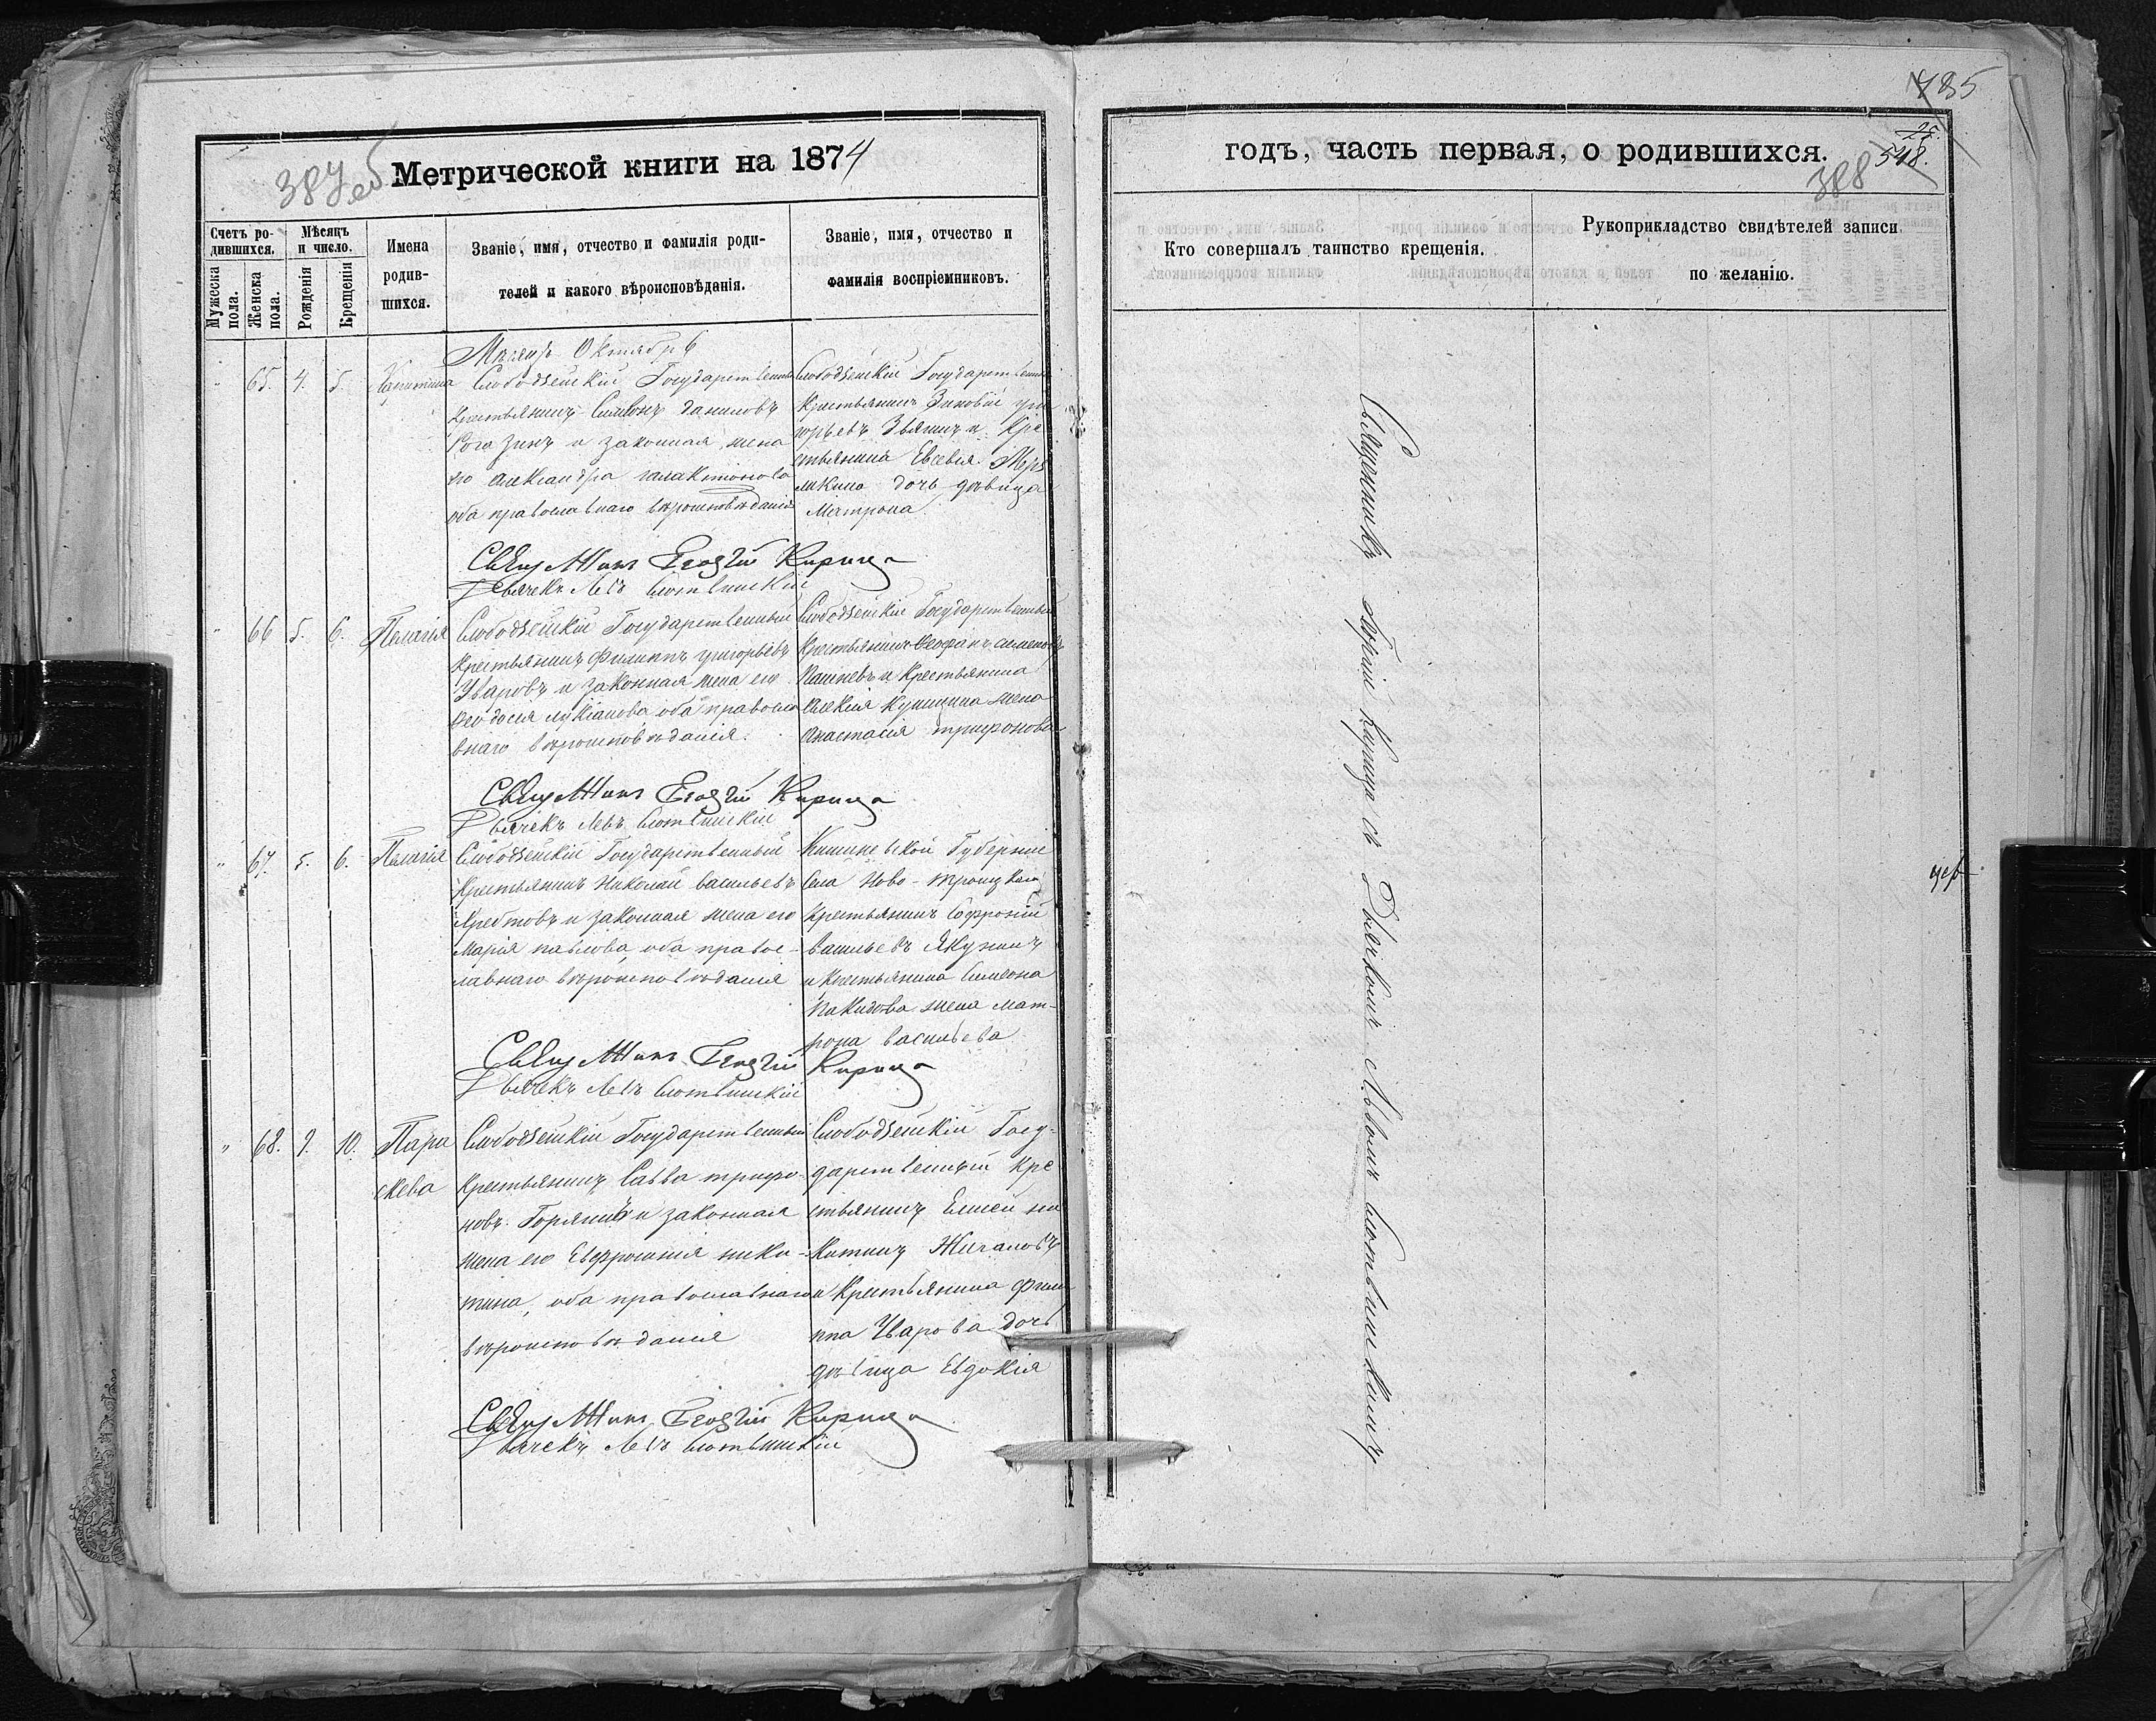 387 об
Метрической книги на 1874
Счетъ ро-
дившихся.
Мужеска
пола.
Женска
пола.
Мѣсяцъ
и число.
Рожденія
Крещенія
Имена
родив-
шихся.
Званіе, имя, отчество и фамилія роди-
телей и какого вѣроисповѣданія.
Званіе, имя, отчество и
фамилія воспріемниковъ.
Мѣсяцъ Октябрь
65. 4. 5.
Капитина
Слободзейскій Государственный
крестьянинъ Симеонъ Даниловъ
Рогозинъ и законная жена
его Александра Галактионова
оба православнаго вѣроисповѣданія
Слободзейскій Государственный
Крестьянинъ Зиновій Гри
горьевъ Звягинъ и Кре
стьянина Евсевія
дочь дѣвица
Матрона
Священникъ Георгій Кирица
Дьячекъ Левъ
66 5. 6.
Пелагія
Слободзейскій Государственный
Крестьянинъ Филиппъ Григорьевъ
Уваровъ и законная жена его
Ѳеодосія Лукіанова оба правосла
внаго вѣроисповѣданія.
Слободзейскій Государственный
Крестьянинъ Ѳеофанъ Симеоновъ
и Крестьянина
Алексія Куницина жена
Анастасія Трифонова
Священникъ Георгій Кирица
Дьячекъ Левъ
67. 5. 6.
Пелагія
Слободзейскій Государственный
Крестьянинъ Николай Васильевъ
и законная жена его
Марія Павлова, оба право-
славнаго вѣроисповѣданія
Кишиневской Губерніи
Села Ново-Троицкаго
Крестьянинъ Софроній
Васильевъ Якунинъ
и Крестьянина Симеона
жена Мат-
рона Васильева
Священникъ Георгій Кирица
Дьячекъ Левъ
68. 9. 10.
Пара
скева
Слободзейскій Государственный
Крестьянинъ Савва Трифо-
новъ Горяиновъ и законная
жена его Евфросинія Ники-
тина, оба православнаго
вѣроисповѣданія
Слободзейскій Госу-
дарственный Кре
стьянинъ Елисей Ни
китинъ Жигаловъ
и Крестьянина Фили
ппа Уварова дочь
дѣвица Евдокія
Священникъ Георгій Кирица
Дьячекъ Левъ
годъ, часть первая, о родившихся.
388
518.
Кто совершалъ таинство крещенія.
Рукоприкладство свидѣтелей записи
по желанію.
Священникъ Георгій Кирица съ Дьячкомъ Львомъ